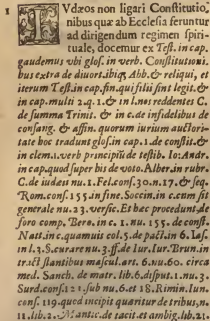 1 IVdæos non ligari Constitutio,
nibus quæ ab Ecclesia feruntur
ad dirigendum regimen spiri-
tuale, docemur ex Test. in cap.
gaudemus vbi glos. in verb. Constitutioni.
bus extra de diuort. ibiq; Abb. & reliqui, et
iterum Test. in cap. fin. qui filij sint legit. &
in cap. multi 2. q. 1. & in l. nos reddentes C.
de summa Trinit. & in c. de infidelibus de
consang. & affin. quorum iurium auctori-
tate hoc tradunt glos. in cap. 1. de constit. &
in clem. 1. verb. principiũ de testib. Io: Andr.
in cap. quod super his de voto. Alber. in rubr.
C. de iudæis nu. 1. Fel. cons. 30. n. 17. & seq.
Rom. cons. 155. in fine. Soccin. in c. cum sit
generale nu. 23. versic. Et hæc procedunt, de
foro comp. Bero. in c. 1. nu. 155. de const.
Natt. in c. quamuis col. 5. de pact. in 6. Las.
in l. 3. S. curare nu. 3. ff. de Iur. Iur. Brun. in
tract. stantibus mascul. art. 6. nu. 60. circa
med. Sanch. de matr. lib. 6. disput. 1. nu. 3.
Surd. cons. 121. sub nu. 6. et 18. Rimin. Iun.
cons. 119. quod incipit quaritur de tribus, n.
11. lib. 2. Mantic. de tacit. et ambig. lib. 21.